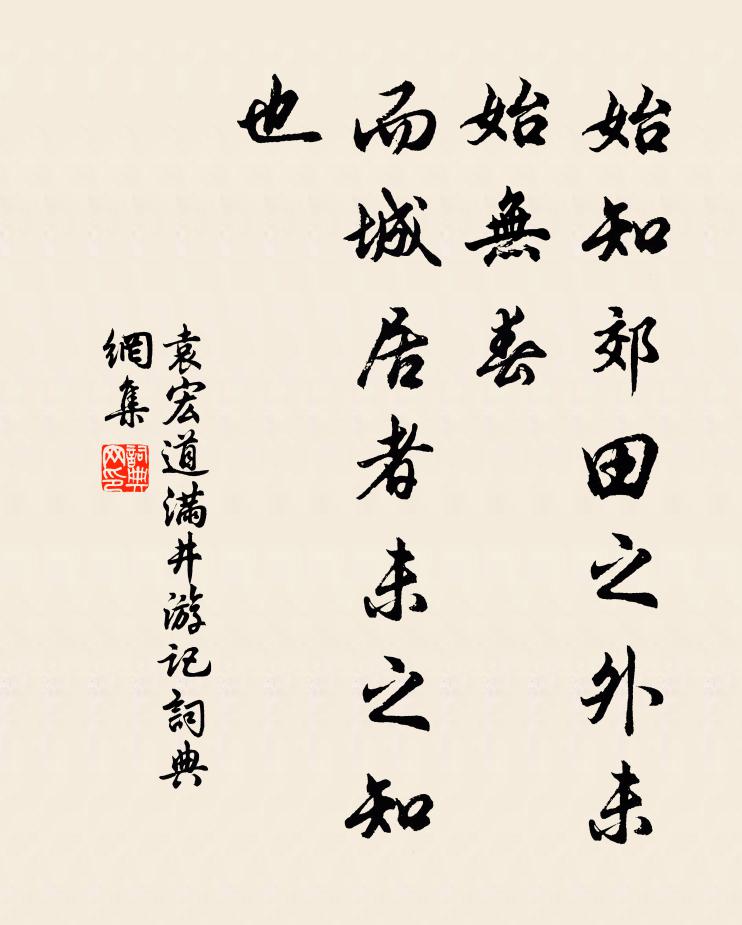 始知郊田之外未
始無春
而城居者未之知
也
袁宏道滿井游記詞典
網集
詞典
网印